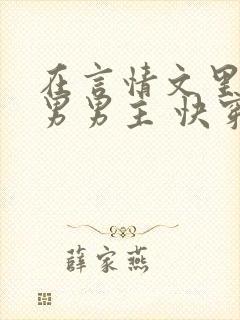 在言情文里
男男主 快穿
薛家燕